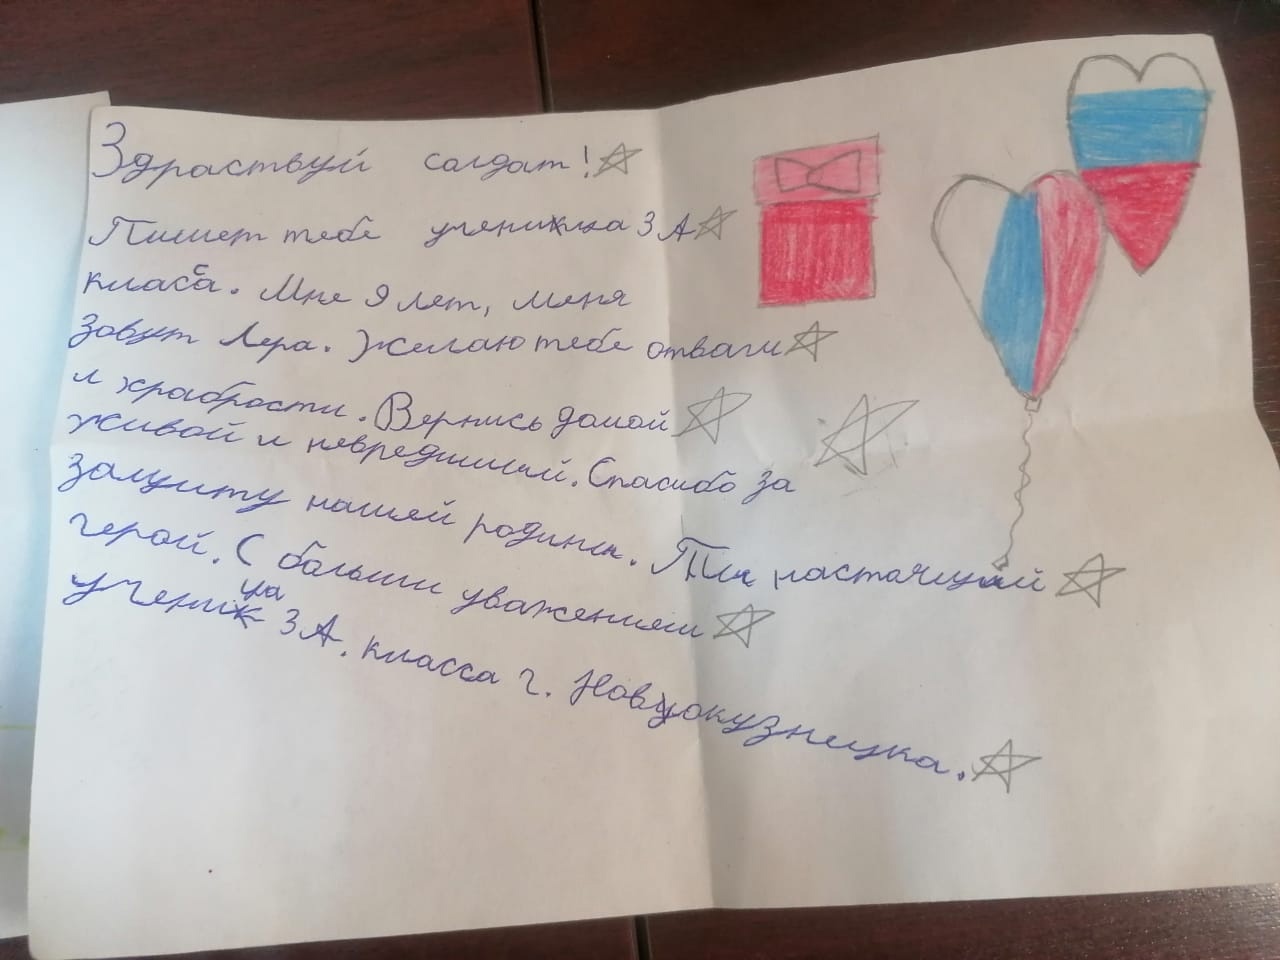 Здраствуй солдат!
Пишет тебе ученица 3 А
класса. Мне 9 лет, меня
зовут Лера. Желаю тебе отваги
и храбрости. Вернись домой
живой и невредимый. Спасибо за
защиту нашей родины. Ты настоящий
герой. С больши уважением
ученица 3 А. класса г. Новокузнецка.